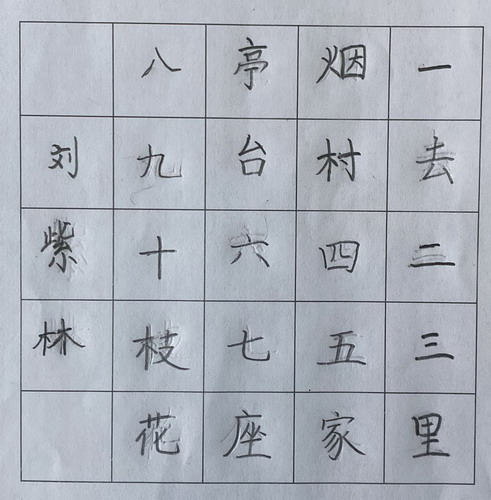 一去二三里
烟村四五家
亭台六七座
八九十枝花
刘紫林